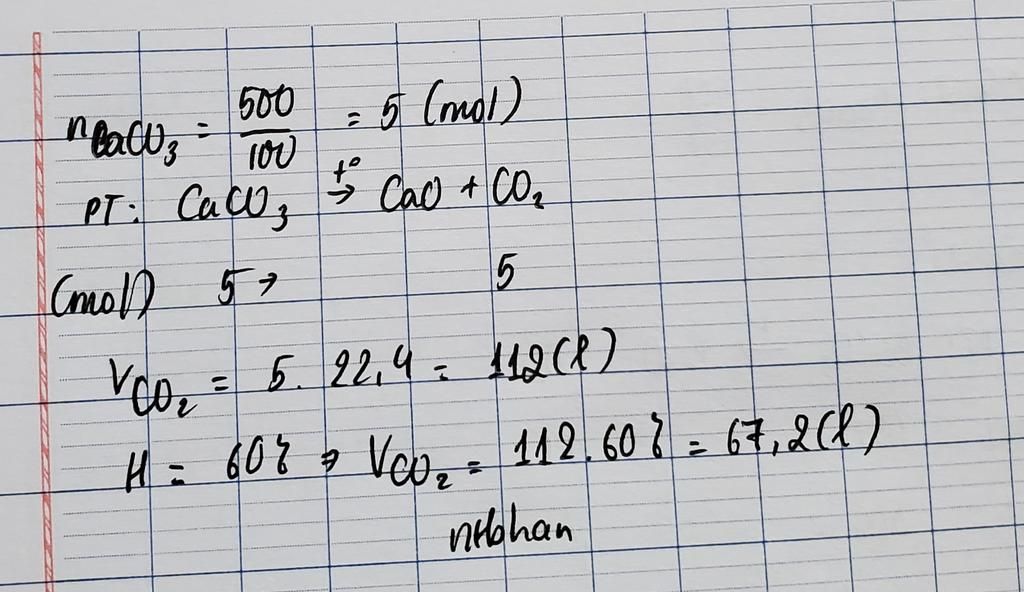 nCaCO₃ = 500/100 = 5 (mol)
PT: CaCO₃ t°→ CaO + CO₂
(mol) 5 → 5
VCO₂ = 5. 22,4 = 112(l)
H = 60% ⇒ VCO₂ = 112.60% = 67,2(l)